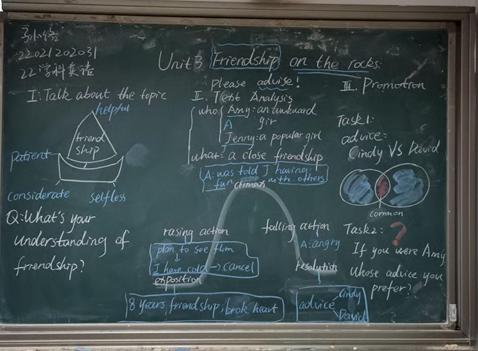 22021202031
22学科英语
Unit 3 Friendship on the rocks:
please advise!
I: Talk about the topic
helpful
friend
ship
Patient
considerate
selfless
Q: What's your
understanding of
friendship?
II. Text Analysis
who
Amy: an awkward
gir
A
Jenny: a popular girl
what: a close friendship
A: was told J having
fun with others
climax
rasing action
plan to see film
I have cold → cancel
exposition
8 years friendship; broke heart
falling action
A: angry
resolution
advice
Cindy
David
III. Promotion
Task1:
advice:
Cindy VS David
common
Task2: ?
If you were Amy
Whose advice you
prefer?